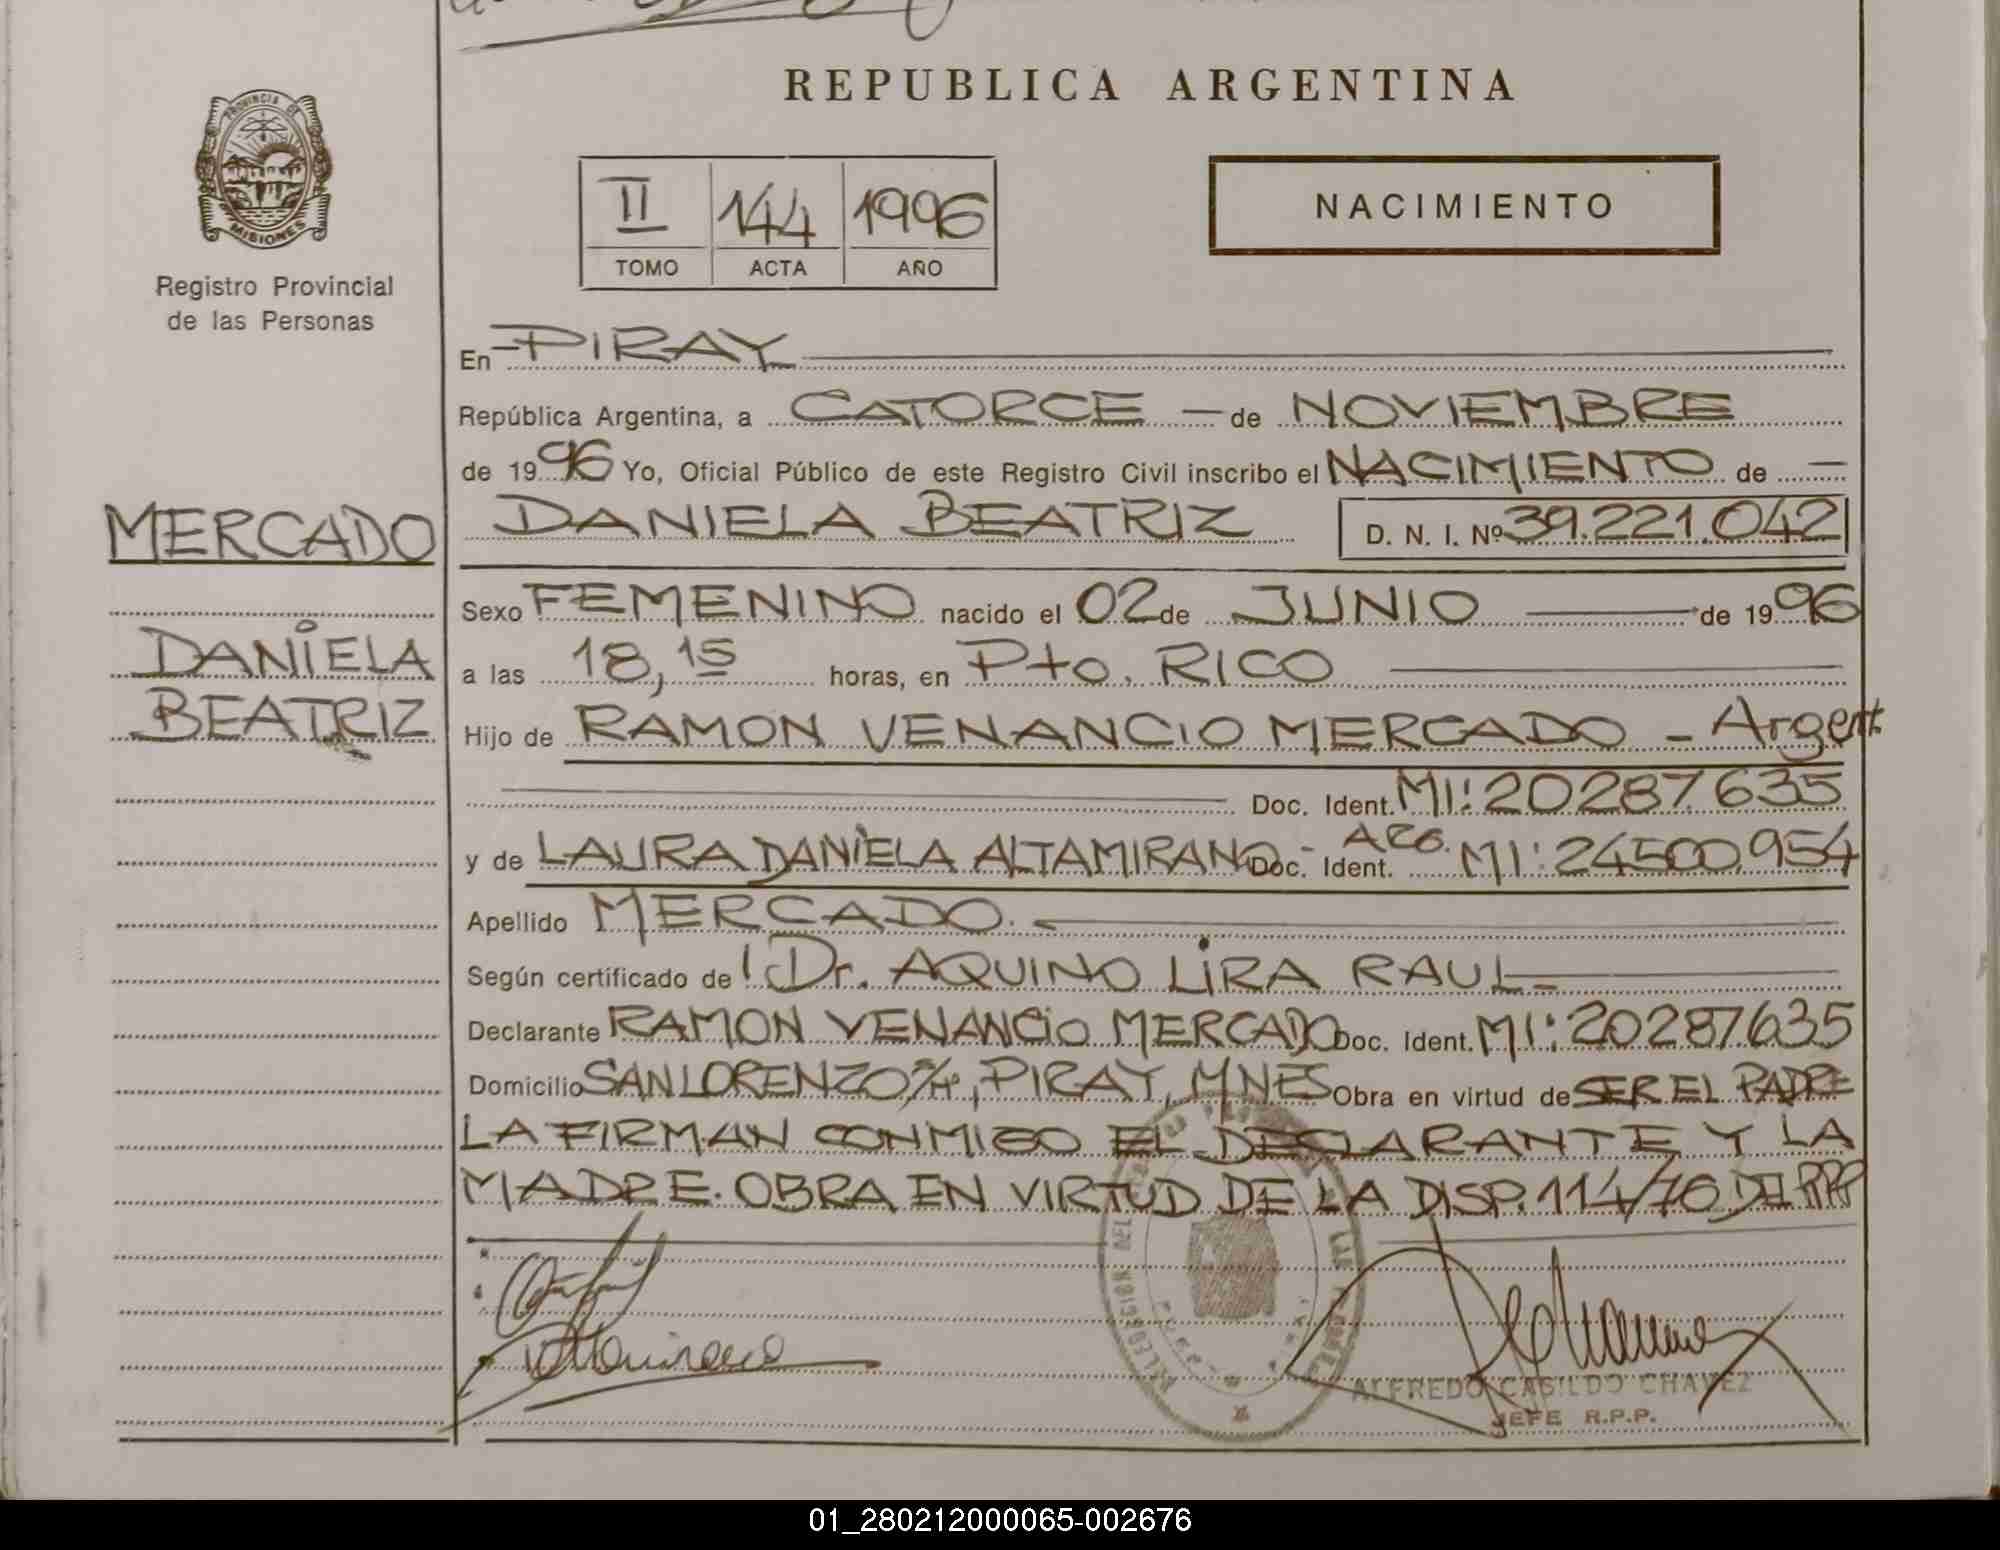 REPUBLICA ARGENTINA
PROVINCIA DE
MISIONES
Registro Provincial
de las Personas
II 144 1996
TOMO ACTA AÑO
NACIMIENTO
En PIRAY
República Argentina, a CATORCE — de NOVIEMBRE
de 1996 Yo, Oficial Público de este Registro Civil inscribo el NACIMIENTO de —
MERCADO
DANIELA BEATRIZ D. N. I. Nº 39.221.042
Sexo FEMENINO nacido el 02 de JUNIO de 1996
DANIELA
BEATRIZ
a las 18,15 horas, en Pto. RICO
Hijo de RAMON VENANCIO MERCADO - Argent.
Doc. Ident. MI: 20287.635
y de LAURA DANIELA ALTAMIRANO - ARG. Doc. Ident. MI: 24500.954
Apellido MERCADO.
Según certificado de Dr. AQUINO LIRA RAUL
Declarante RAMON VENANCIO MERCADO Doc. Ident. MI: 20287.635
Domicilio SAN LORENZO S/Nº, PIRAY, MNES Obra en virtud de SER EL PADRE
LA FIRMAN CONMIGO EL DECLARANTE Y LA
MADRE. OBRA EN VIRTUD DE LA DISP. 114/76 DEL RPP
ALFREDO CASILDO CHAVEZ
JEFE R.P.P.
01_280212000065-002676